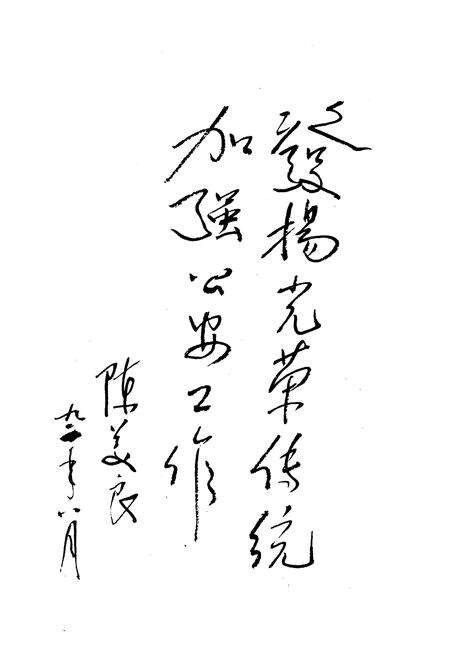 發揚光荣传统
加强公安工作
陈美良
九二年八月